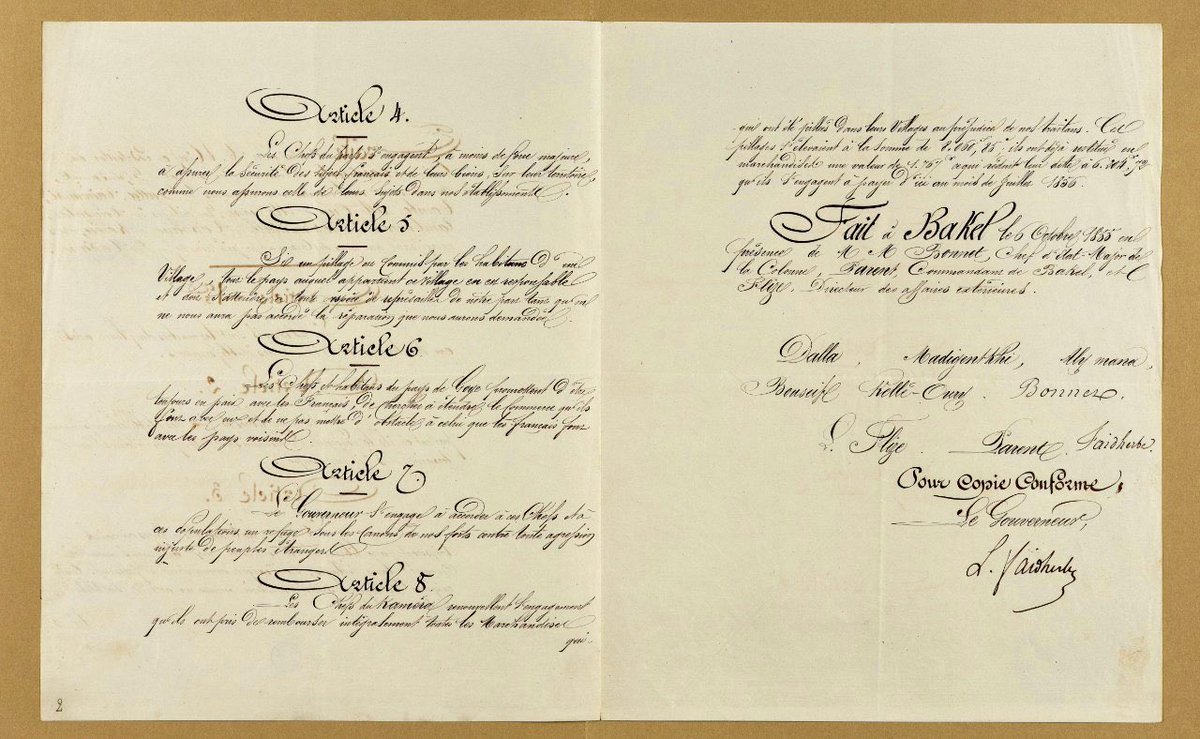 Article 4.
Les Chefs du pays s'engagent, à moins de force majeure,
à assurer la sécurité des sujets français et de leurs biens, sur leur territoire,
comme nous assurons celle de leurs sujets dans nos établissements.
Article 5.
Si un pillage est commis par les habitans d'un
Village, tout le pays auquel appartient ce Village en est responsable
et doit s'attendre à toute espèce de représailles de notre part tant qu'on
ne nous aura pas accordé la réparation que nous aurons demandée.
Article 6
Les Chefs et habitans du pays de Goye promettent d'être
toujours en paix avec les Français, de chercher à étendre le commerce qu'ils
font avec eux et de ne pas mettre d'obstacle à celui que les français font
avec les pays voisins.
Article 7.
Le Gouverneur s'engage à accorder à ces Chefs et à
ces populations un refuge sous les Canons de nos forts contre toute agression
injuste de peuples étrangers.
Article 8.
Les Chefs du Kaméra renouvellent l'engagement
qu'ils ont pris de rembourser intégralement toutes les Marchandises
qui
2
qui ont été pillées dans leurs Villages au préjudice de nos traitans. Ces
pillages s'élevaient à la somme de ils ont déjà restitué en
marchandises une valeur de ce qui réduit leur dette à
qu'ils s'engagent à payer d'ici au mois de Juillet 1856.
Fait à Bakel le 6 Octobre 1855 en
présence de M M Bonnet, Chef d'état-Major de
la Colonne, Parent, Commandant de Bakel, et
Flize, Directeur des affaires extérieures.
Dalla, Aly mana,
Bonnet.
L. Flize Parent. Faidherbe.
Pour Copie Conforme,
Le Gouverneur,
L. Faidherbe